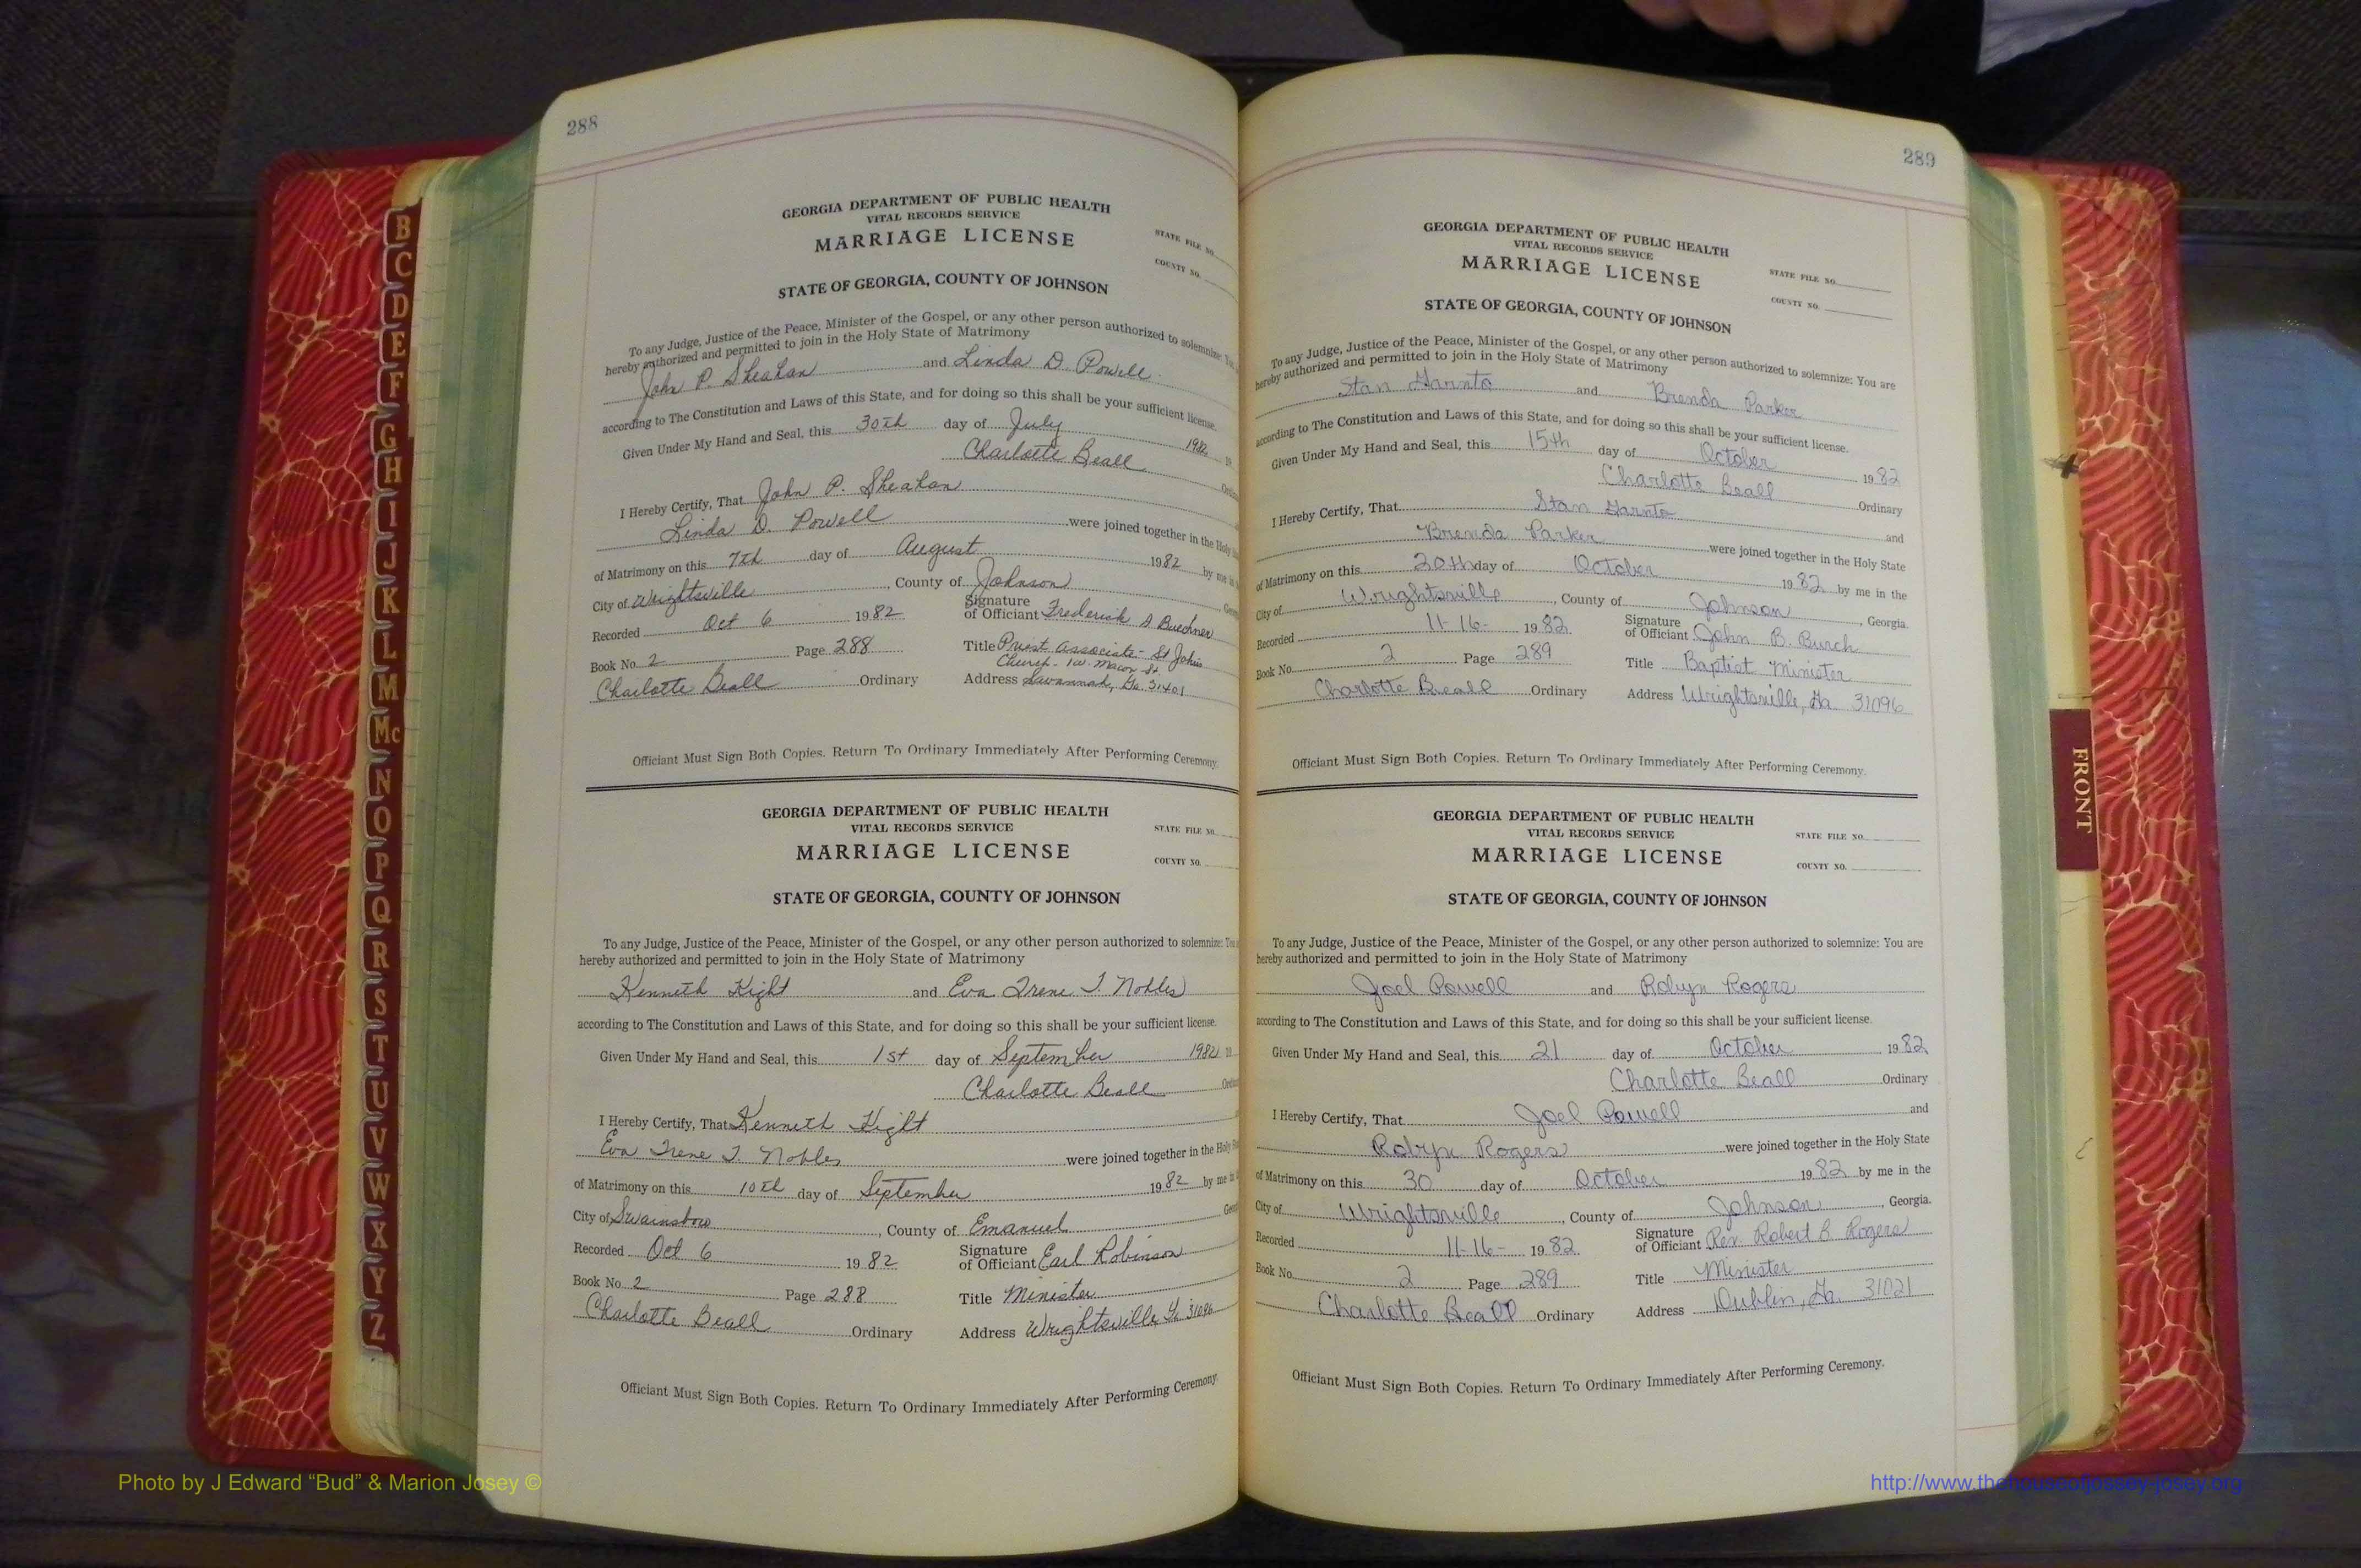 288
GEORGIA DEPARTMENT OF PUBLIC HEALTH
VITAL RECORDS SERVICE
MARRIAGE LICENSE
STATE FILE NO.
COUNTY NO.
STATE OF GEORGIA, COUNTY OF JOHNSON
To any Judge, Justice of the Peace, Minister of the Gospel, or any other person authorized to solemnize:
hereby authorized and permitted to join in the Holy State of Matrimony
John P. Sheahan and Linda D. Powell
according to The Constitution and Laws of this State, and for doing so this shall be your sufficient license.
Given Under My Hand and Seal, this 30th day of July 1982
Charlotte Beall
I Hereby Certify, That John P. Sheahan
Linda D. Powell were joined together in the Holy
of Matrimony on this 7th day of August 1982 by me in
City of Wrightsville, County of Johnson
Recorded Oct 6 1982 Signature of Officiant Frederick A Buechner
Book No. 2 Page 288 Title Priest Associate - St John's
Church - 1 W. Macon St.
Charlotte Beall Ordinary Address Savannah, Ga. 31401
Officiant Must Sign Both Copies. Return To Ordinary Immediately After Performing Ceremony.
GEORGIA DEPARTMENT OF PUBLIC HEALTH
VITAL RECORDS SERVICE
MARRIAGE LICENSE
STATE FILE NO.
COUNTY NO.
STATE OF GEORGIA, COUNTY OF JOHNSON
To any Judge, Justice of the Peace, Minister of the Gospel, or any other person authorized to solemnize:
hereby authorized and permitted to join in the Holy State of Matrimony
Kenneth Kight and Eva Irene T. Nobles
according to The Constitution and Laws of this State, and for doing so this shall be your sufficient license.
Given Under My Hand and Seal, this 1st day of September 1982
Charlotte Beall
I Hereby Certify, That Kenneth Kight
Eva Irene T. Nobles were joined together in the Holy
of Matrimony on this 10th day of September 1982 by me in
City of Swainsboro, County of Emanuel
Recorded Oct 6 1982 Signature of Officiant Earl Robinson
Book No. 2 Page 288 Title Minister
Charlotte Beall Ordinary Address Wrightsville Ga 31096
Officiant Must Sign Both Copies. Return To Ordinary Immediately After Performing Ceremony.
289
GEORGIA DEPARTMENT OF PUBLIC HEALTH
VITAL RECORDS SERVICE
MARRIAGE LICENSE
STATE FILE NO.
COUNTY NO.
STATE OF GEORGIA, COUNTY OF JOHNSON
To any Judge, Justice of the Peace, Minister of the Gospel, or any other person authorized to solemnize: You are
hereby authorized and permitted to join in the Holy State of Matrimony
Stan Garnto and Brenda Parker
according to The Constitution and Laws of this State, and for doing so this shall be your sufficient license.
Given Under My Hand and Seal, this 15th day of October 1982
Charlotte Beall Ordinary
I Hereby Certify, That Stan Garnto and
Brenda Parker were joined together in the Holy State
of Matrimony on this 20th day of October 1982 by me in the
City of Wrightsville, County of Johnson, Georgia.
Recorded 11-16- 1982 Signature of Officiant John B. Burch
Book No. 2 Page 289 Title Baptist Minister
Charlotte Beall Ordinary Address Wrightsville, Ga. 31096
Officiant Must Sign Both Copies. Return To Ordinary Immediately After Performing Ceremony.
GEORGIA DEPARTMENT OF PUBLIC HEALTH
VITAL RECORDS SERVICE
MARRIAGE LICENSE
STATE FILE NO.
COUNTY NO.
STATE OF GEORGIA, COUNTY OF JOHNSON
To any Judge, Justice of the Peace, Minister of the Gospel, or any other person authorized to solemnize: You are
hereby authorized and permitted to join in the Holy State of Matrimony
Joel Powell and Robyn Rogers
according to The Constitution and Laws of this State, and for doing so this shall be your sufficient license.
Given Under My Hand and Seal, this 21 day of October 1982
Charlotte Beall Ordinary
I Hereby Certify, That Joel Powell and
Robyn Rogers were joined together in the Holy State
of Matrimony on this 30 day of October 1982 by me in the
City of Wrightsville, County of Johnson, Georgia.
Recorded 11-16- 1982 Signature of Officiant Rev. Robert B. Rogers
Book No. 2 Page 289 Title Minister
Charlotte Beall Ordinary Address Dublin, Ga. 31021
Officiant Must Sign Both Copies. Return To Ordinary Immediately After Performing Ceremony.
B
C
D
E
F
G
H
I
J
K
L
M
Mc
N
O
P
Q
R
S
T
U
V
W
X
Y
Z
FRONT
Photo by J Edward “Bud” & Marion Josey ©
http://www.thehouseofjossey-josey.org